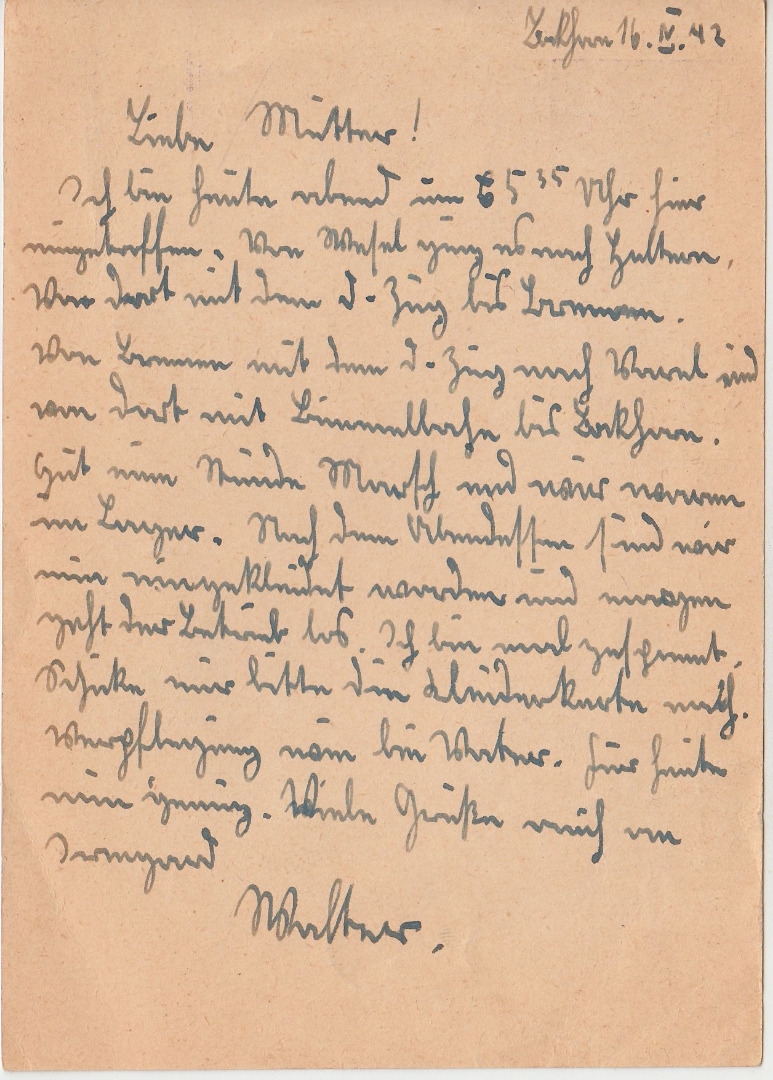 Bockhorn 16.IV.42
Liebe Mutter!
Ich bin heute abend um 5 35 Uhr hier
eingetroffen. Von Wesel ging es nach Haltern,
Von dort mit dem d-Zug bis Bremen.
Von Bremen mit dem d-Zug nach Varel und
von dort mit Bimmelbahn bis Bockhorn.
Gut eine Stunde Marsch und wir waren
im Lager. Nach dem Abendessen sind wir
nun eingekleidet worden und morgen
geht der Betrieb los. Ich bin mal gespannt.
Schicke mir bitte die Kleiderkarte nach.
Verpflegung wie bei Vater. Für heute
nun genug. Viele Grüße auch an
Irmgard
Walter.